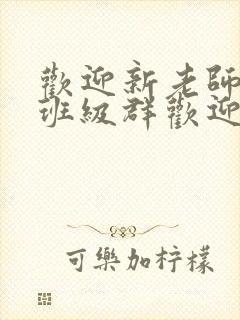 歡迎新老師
班級群歡迎
可樂加柠檬